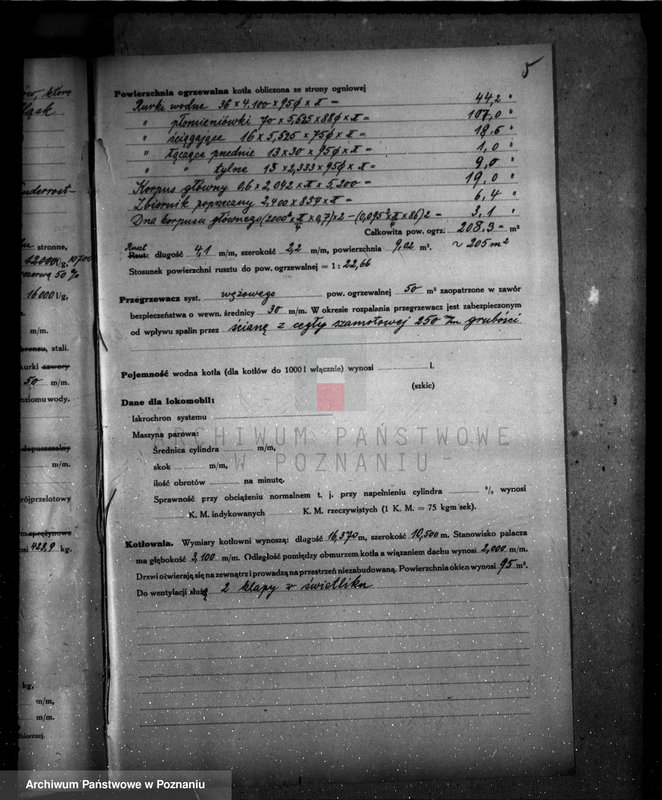 5
Powierzchnia ogrzewalna kotła obliczona ze strony ogniowej
Rurki wodne 36 × 4.100 × 95φ × π = 44,2 "
" płomieniówki 70 × 5,525 × 88φ × π = 107,0 "
" ściągające 16 × 5,525 × 75φ × π = 18,6 "
" łączące przednie 13 × 30 × 95φ × π = 1,0 "
" " tylne 13 × 2,333 × 95φ × π = 9,0 "
Korpus główny 0,6 × 2,042 × π × 5.200 = 19,0 "
Zbiornik poprzeczny 2,400 × 854 × π = 6,4 "
Dna korpusu głównego (2000² × π/4 × 0,7) × 2 − (0,095² × π/4 × 86) 2 = 3,1 "
Całkowita pow. ogrz. 208,3 = m²
Ruszt: długość 4,1 m/m, szerokość 2,2 m/m, powierzchnia 9,02 m². ~ 205 m²
Stosunek powierzchni rusztu do pow. ogrzewalnej = 1 : 22,66
Przegrzewacz syst. wężowego pow. ogrzewalnej 50 m² zaopatrzone w zawór
bezpieczeństwa o wewn. średnicy 30 m/m. W okresie rozpalania przegrzewacz jest zabezpieczonym
od wpływu spalin przez ścianę z cegły szamotowej 250 m/m grubości
Pojemność wodna kotła (dla kotłów do 1000 l włącznie) wynosi l.
(szkic)
Dane dla lokomobil:
Iskrochron systemu
Maszyna parowa:
Średnica cylindra m/m,
skok m/m,
ilość obrotów na minutę.
Sprawność przy obciążeniu normalnem t. j. przy napełnieniu cylindra % wynosi
K. M. indykowanych K. M. rzeczywistych (1 K. M. = 75 kgm sek).
Kotłownia. Wymiary kotłowni wynoszą: długość 16,370 m, szerokość 10,500 m. Stanowisko palacza
ma głębokość 3,100 m/m. Odległość pomiędzy obmurzem kotła a wiązaniem dachu wynosi 2,000 m/m.
Drzwi otwierają się na zewnątrz i prowadzą na przestrzeń niezabudowaną. Powierzchnia okien wynosi 95 m².
Do wentylacji służą 2 klapy w świetliku
ARCHIWUM PAŃSTWOWE
W POZNANIU
które
stronne,
42000 l/g. 10700
50 %
16000 l/g,
m/m.
stali.
zawory
50 m/m.
poziomu wody.
dopuszczalny
m/m.
sprężynowe
422,9 kg.
kg,
m/m,
m/m.
Archiwum Państwowe w Poznaniu